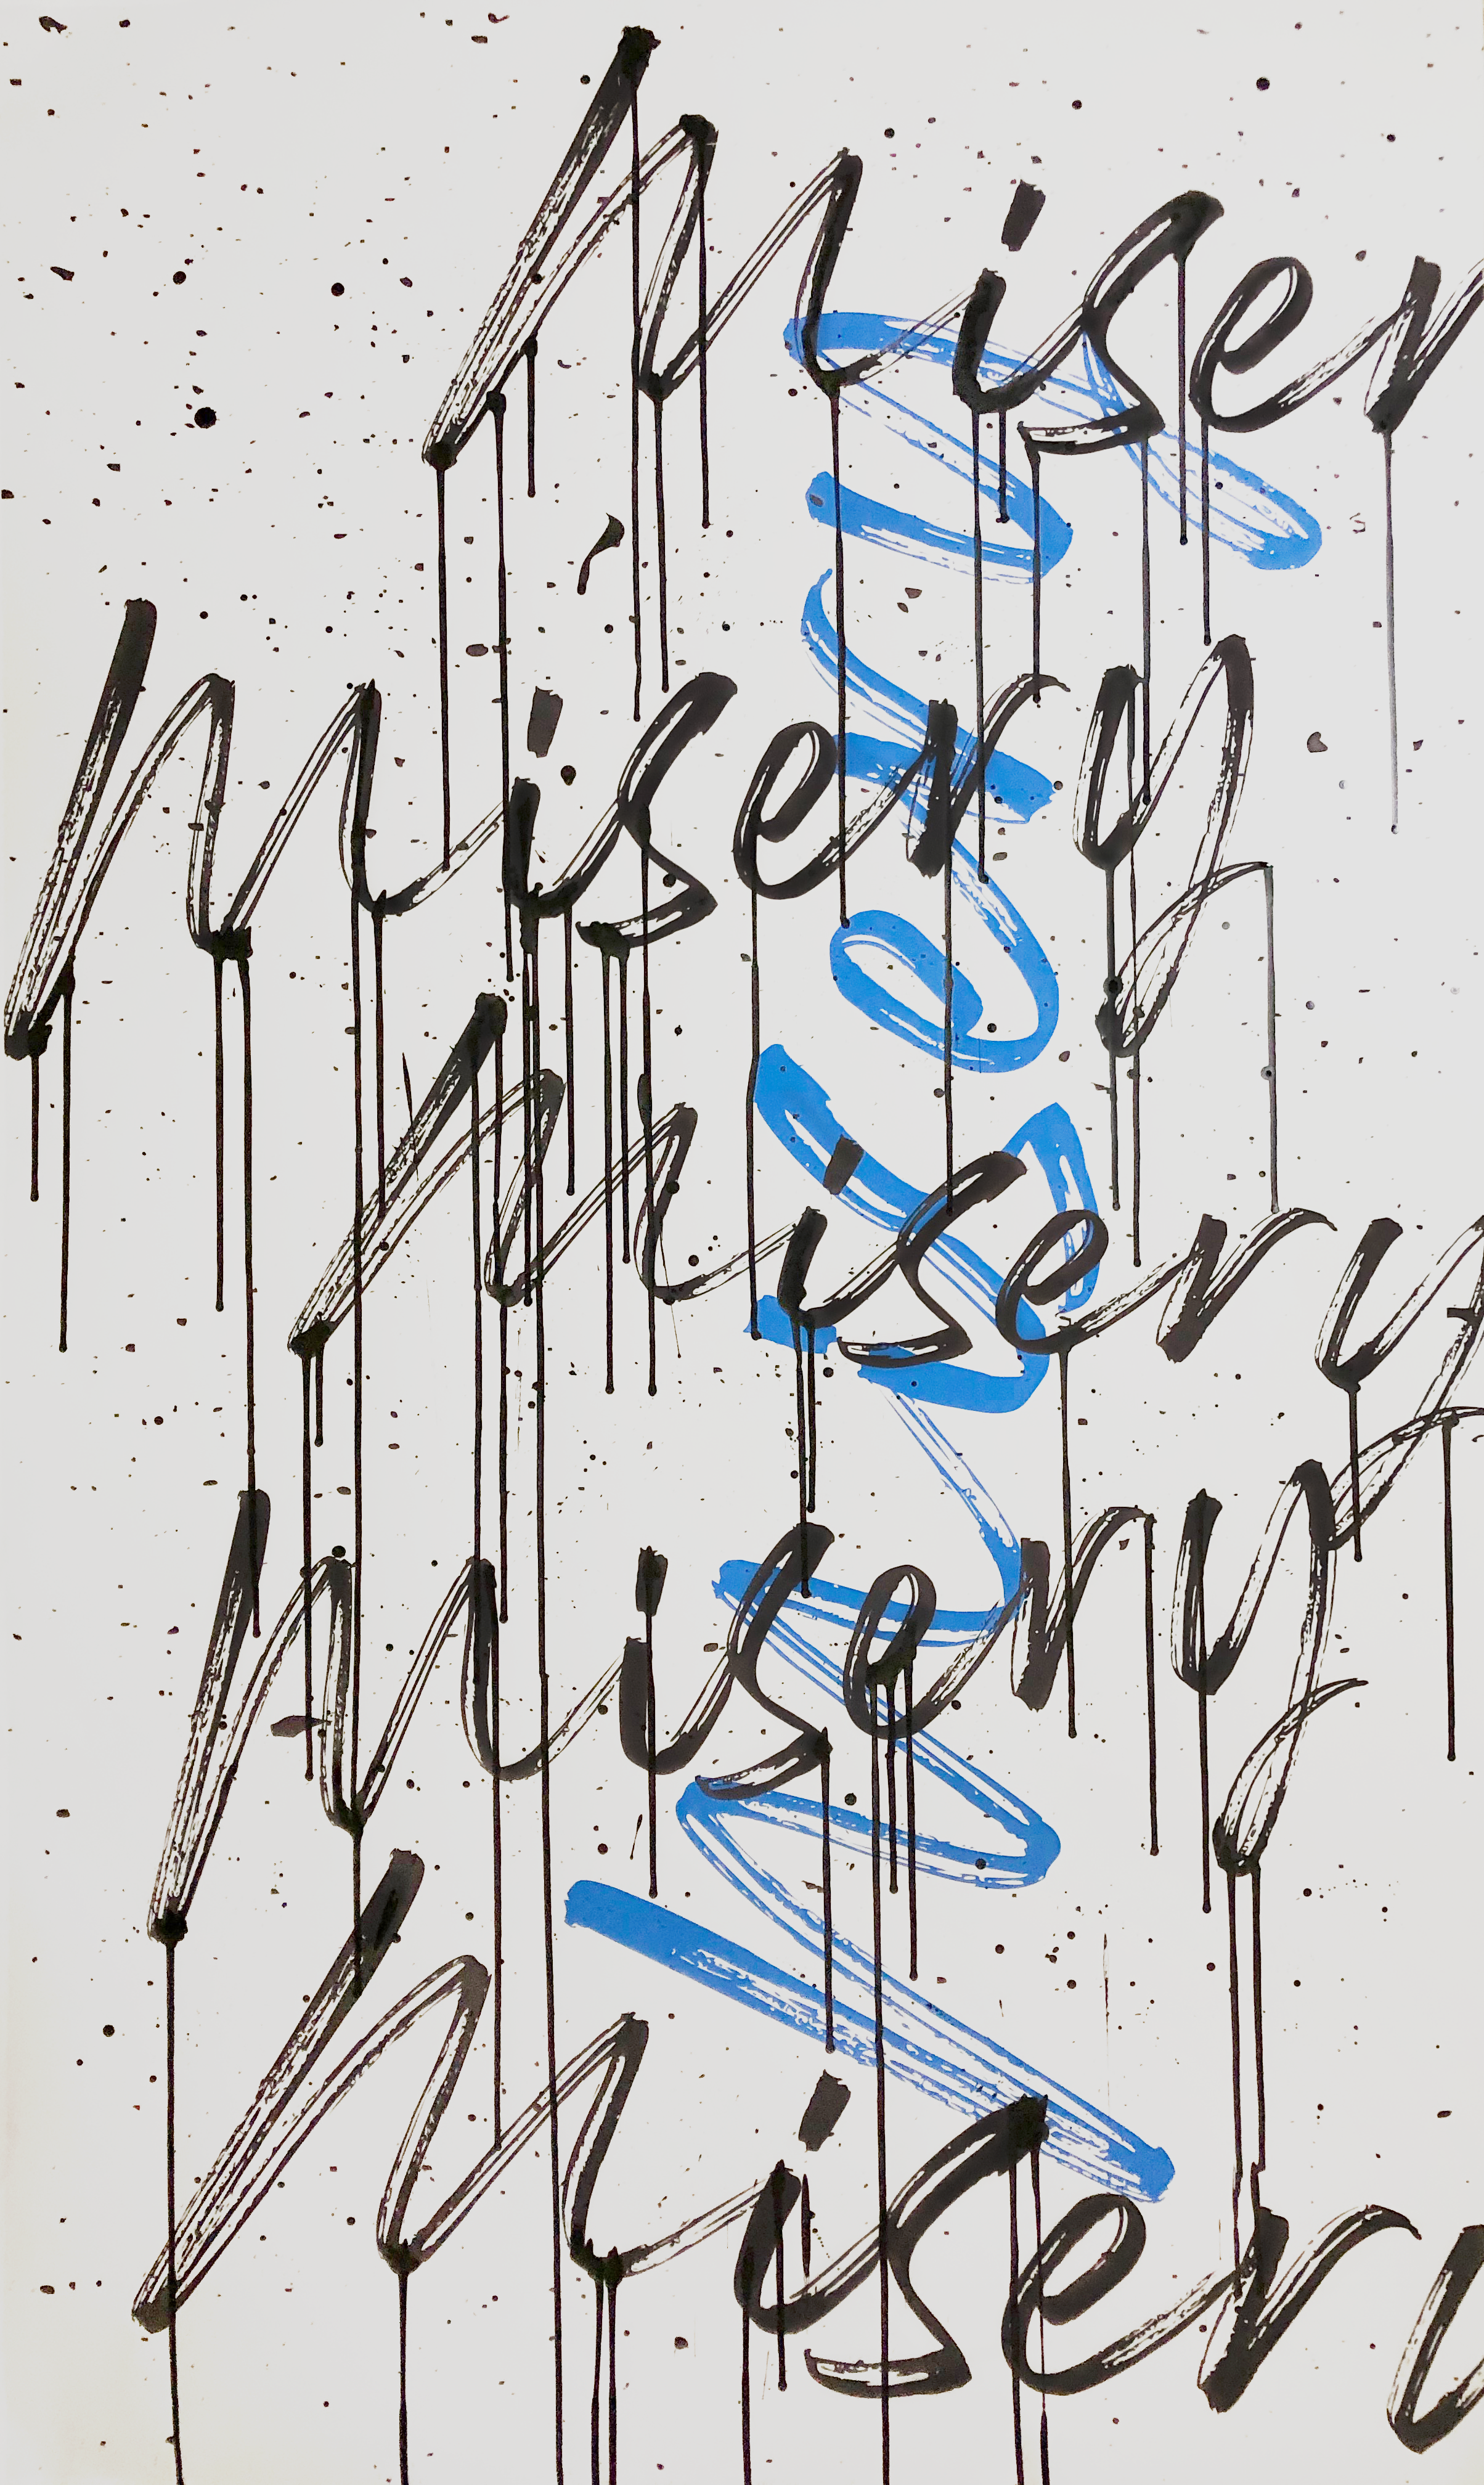 Miser
Misery
Misery
Misery
Misery
Misery